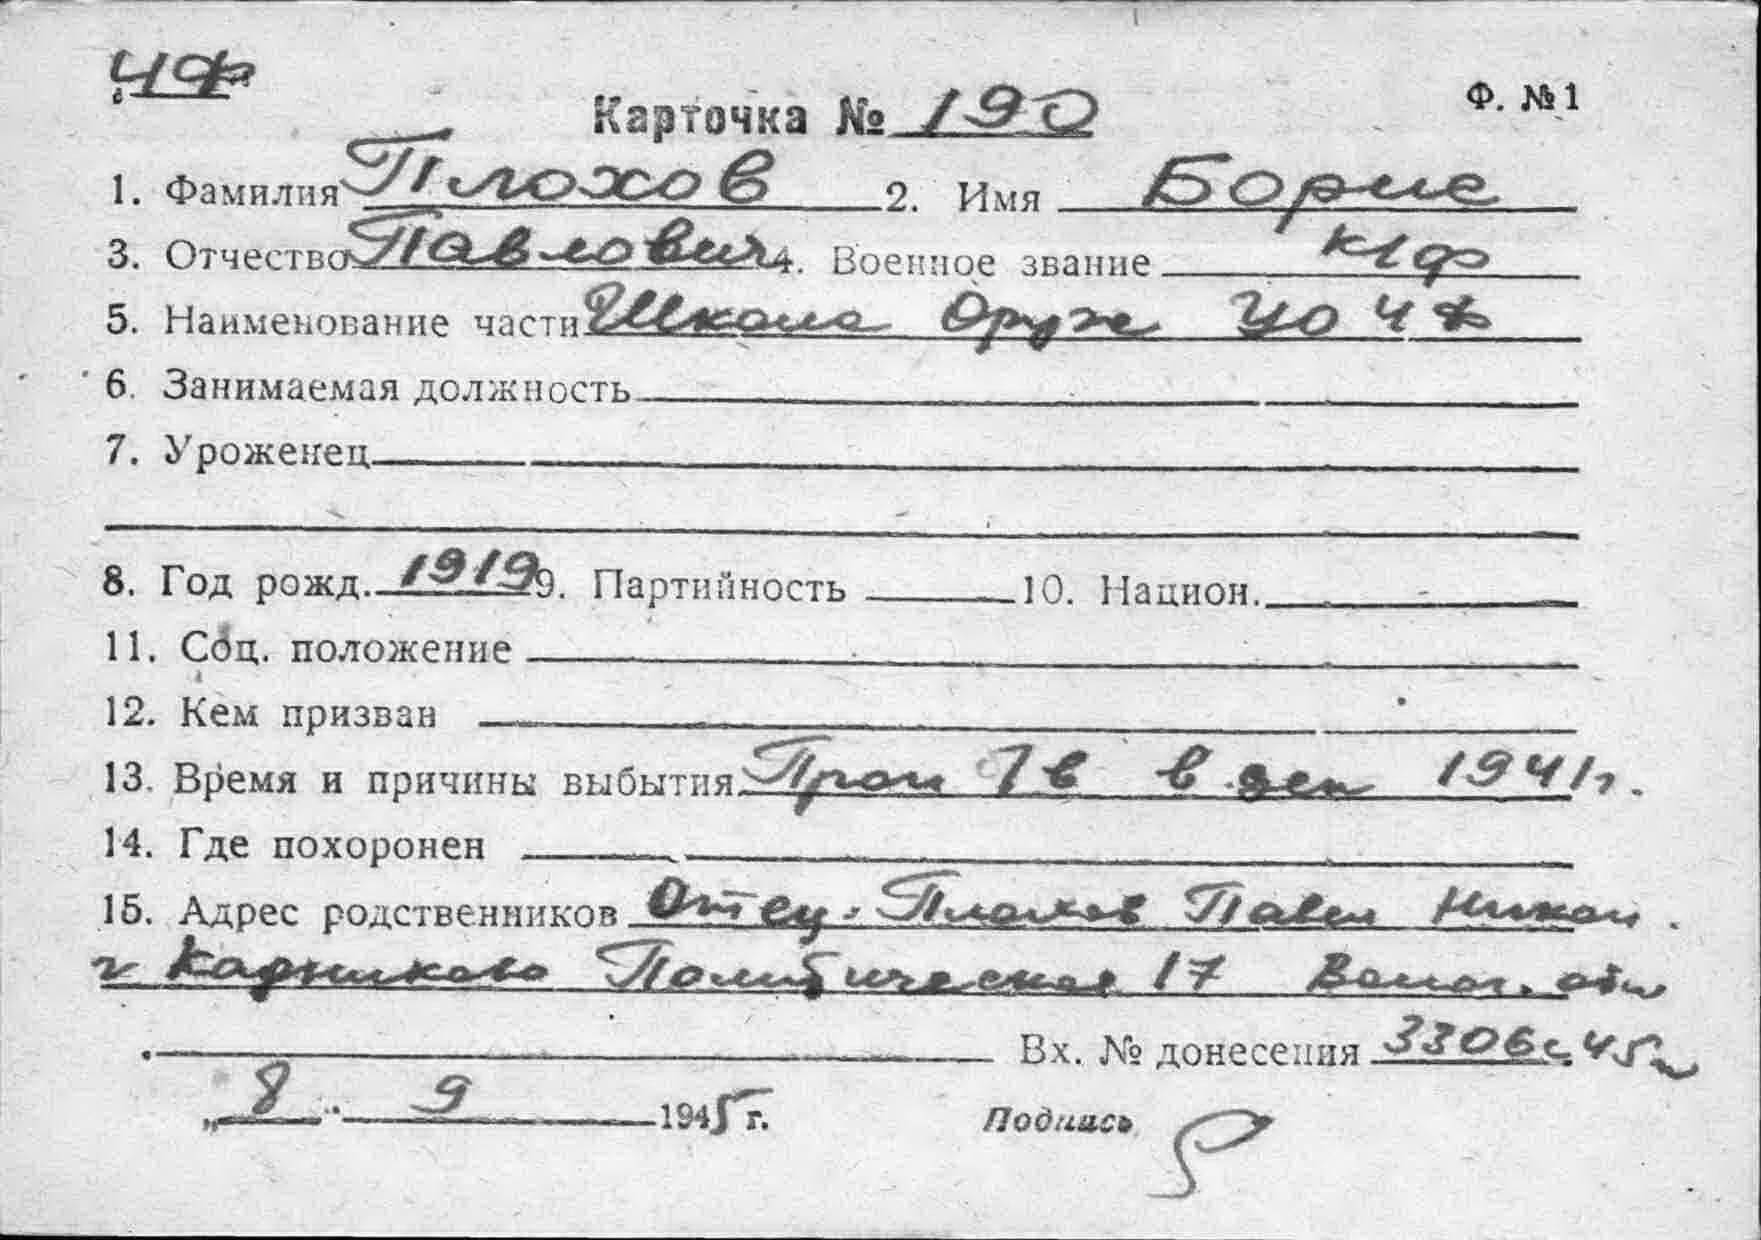 ЧФ
Ф. №1
Карточка № 190
1. Фамилия Плохов 2. Имя Борис
3. Отчество Павлович 4. Военное звание к/ф
5. Наименование части Школа Оруж УО ЧФ
6. Занимаемая должность
7. Уроженец
8. Год рожд. 1919 9. Партийность 10. Национ.
11. Соц. положение
12. Кем призван
13. Время и причины выбытия Проп б/в в дек 1941г.
14. Где похоронен
15. Адрес родственников Отец: Плохов Павел Никол.
г Кадниково Политическая 17 Волог. обл
Вх. № донесения 3306с. 45г
„8" 9 1945 г. Подпись